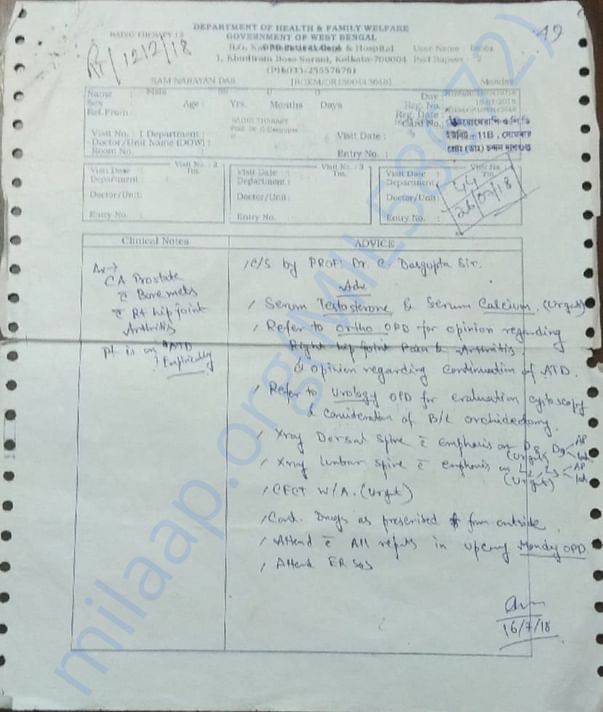 DEPARTMENT OF HEALTH & FAMILY WELFARE
GOVERNMENT OF WEST BENGAL
49
R.G. Kar & Hospital User Name :
1, Khudiram Bose Sarani, Kolkata-700004 Paid Rupees 2
(Ph)033-25557676)
RT/1212/18
RAM NARAYAN DAS Monday
Name : Male
Sex : Age : Yrs. Months Days
Ref.From :
Day
Reg. No.
Reg. Date :
Card No.:
RADIO THERAPY
Visit No. : Department :
Doctor/Unit Name (DOW) :
Room No.
Visit Date :
Entry No. :
ইউনিট - 11B, সোমবার
Visit Date : Visit No. : 2 Tm.
Department :
Doctor/Unit:
Entry No. :
Visit Date : Visit No. : 3 Tm.
Department :
Doctor/Unit:
Entry No. :
Visit Date : Visit No. Tm.
Department :
Doctor/Unit:
Entry No. :
44
26/07/18
Clinical Notes
CA Prostate
c̄ Bone mets
c̄ Rt hip joint
Arthritis
Pt is on ATD
Empirically
ADVICE
/ C/S by PROF: Dr. C. Dasgupta Sir.
Adv
/ Serum Testosterone & Serum Calcium. (Urgt)
/ Refer to Ortho OPD for opinion regarding
Right hip joint Pain & Arthritis
& opinion regarding continuation of ATD.
/ Refer to Urology OPD for evaluation cystoscopy
& consideration of B/L orchidectomy.
/ Xray Dorsal Spine c̄ emphasis on D8, D9 AP
(Urgt) Lat
/ Xray Lumbar Spine c̄ emphasis on L2, L3 AP
(Urgt) Lat
/ CECT W/A. (Urgt)
/ Cont. Drugs as prescribed from outside.
/ Attend c̄ All reports in upcoming Monday OPD
/ Attend ER SOS
16/7/18
milaap.org(MIL53072)